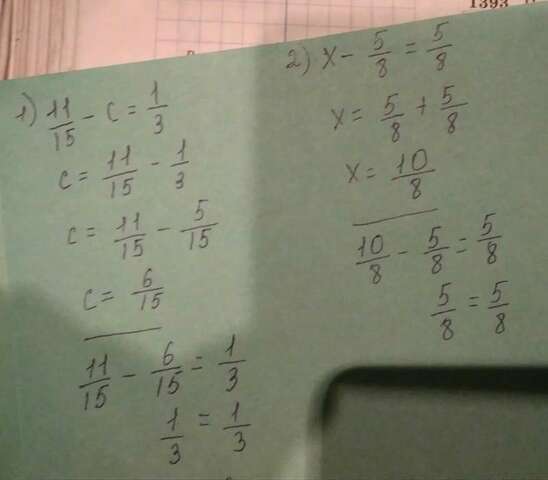 1393
1) 11/15 - c = 1/3
c = 11/15 - 1/3
c = 11/15 - 5/15
c = 6/15
11/15 - 6/15 = 1/3
1/3 = 1/3
2) x - 5/8 = 5/8
x = 5/8 + 5/8
x = 10/8
10/8 - 5/8 = 5/8
5/8 = 5/8